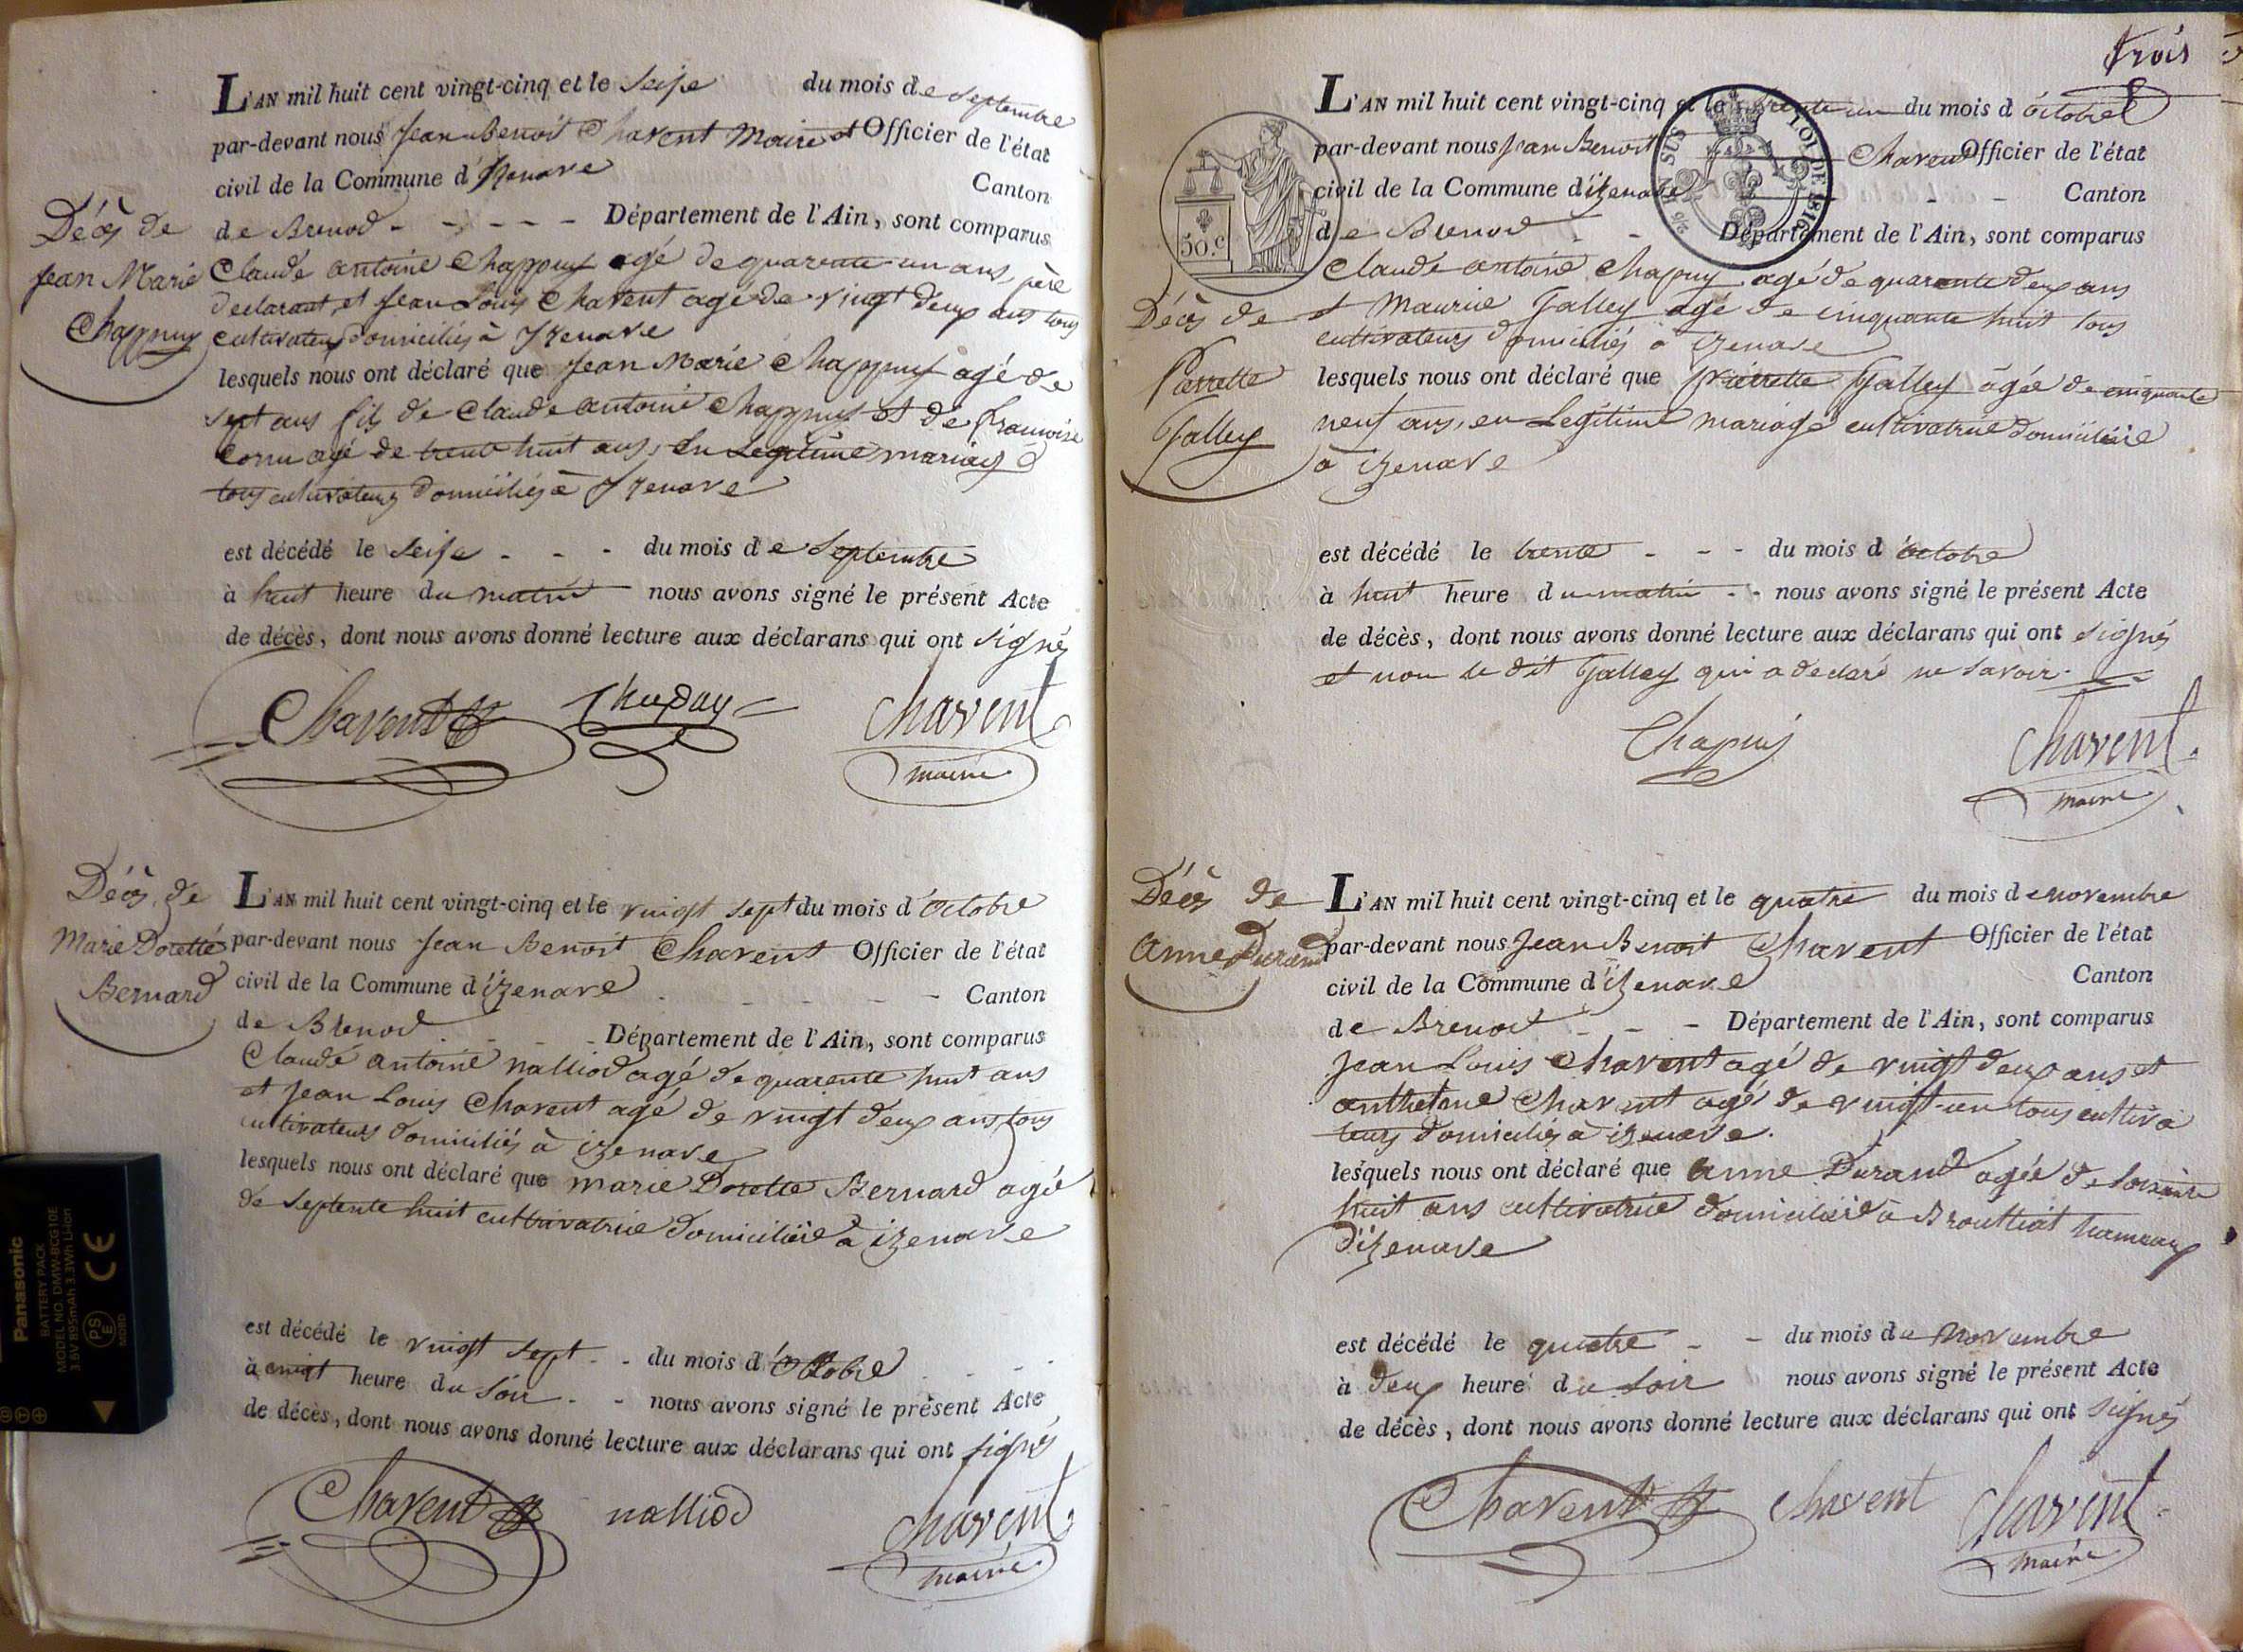 L'AN mil huit cent vingt-cinq et le seise du mois de septembre
par-devant nous Jean Benoit Charent Maire et Officier de l'état
civil de la Commune d'Izenave Canton
de Brenod - - - - - Département de l'Ain, sont comparus
Claude antoine Chappuy agé de quarente un ans, père
declarant, et Jean Louis Charent agé de vingt deux ans tous
cultivateurs domiciliés à Izenave
lesquels nous ont déclaré que Jean Marie Chappuy agé de
sept ans fils de Claude antoine Chappuy et de francoise
Cornu agé de trente huit ans, en Legitime mariage
tous cultivateurs domiciliés à Izenave
Décès de
Jean Marie
Chappuy
est décédé le seise - - - du mois de septembre
à huit heure du matin nous avons signé le présent Acte
de décès, dont nous avons donné lecture aux déclarans qui ont signés
Charent Chapuy Charent
maire
Décès de
Marie Dorette
Bernard
L'AN mil huit cent vingt-cinq et le vingt sept du mois d'octobre
par-devant nous Jean Benoit Charent Officier de l'état
civil de la Commune d'izenave - - - - Canton
de Brenod - - - Département de l'Ain, sont comparus
Claude antoine nalliod agé de quarente huit ans
et Jean Louis Charent agé de vingt deux ans, tous
cultivateurs domiciliés à izenave
lesquels nous ont déclaré que marie Dorette Bernard agé
de septente huit cultivatrice domiciliée à izenave
est décédé le vingt sept - - du mois d'octobre
à heure du soir - - nous avons signé le présent Acte
de décès, dont nous avons donné lecture aux déclarans qui ont signés
Charent nalliod Charent
maire
trois
L'AN mil huit cent vingt-cinq et le trente un du mois d'octobre
par-devant nous Jean Benoit Charent Officier de l'état
civil de la Commune d'izenave - - Canton
de Brenod - - Département de l'Ain, sont comparus
50.c
LOI DE 1816
EN SUS
Claude antoine Chapuy agé de quarante deux ans
et Maurice Jalley agé de cinquante huit tous
cultivateurs domiciliés à izenave
lesquels nous ont déclaré que pierrette Jalley âgée de cinquante
neuf ans, en Legitime mariage cultivatrice domiciliée
à izenave
Décès de
Pierrette
Jalley
est décédé le trente - - - du mois d'octobre
à huit heure du matin - - nous avons signé le présent Acte
de décès, dont nous avons donné lecture aux déclarans qui ont signés
et non le dit Jalley qui a declaré ne savoir.
Chapuis Charent
maire
Décès de
anne Durand
L'AN mil huit cent vingt-cinq et le quatre du mois de novembre
par-devant nous Jean Benoit Charent Officier de l'état
civil de la Commune d'izenave Canton
de Brenod - - - Département de l'Ain, sont comparus
Jean Louis Charent agé de vingt deux ans et
anthelme Charent agé de vingt-un tous cultiva
teurs domiciliés à izenave.
lesquels nous ont déclaré que anne Durand agée de soixante
huit ans cultivatrice domiciliée à hameau
d'izenave
est décédé le quatre - - du mois de Novembre
à deux heure du soir nous avons signé le présent Acte
de décès, dont nous avons donné lecture aux déclarans qui ont signés
Charent Charent Charent
maire
Panasonic
BATTERY PACK
MODEL NO. DMW-BCG10E
3.6V 895mAh 3.3Wh Li-ion
CE
PS
E